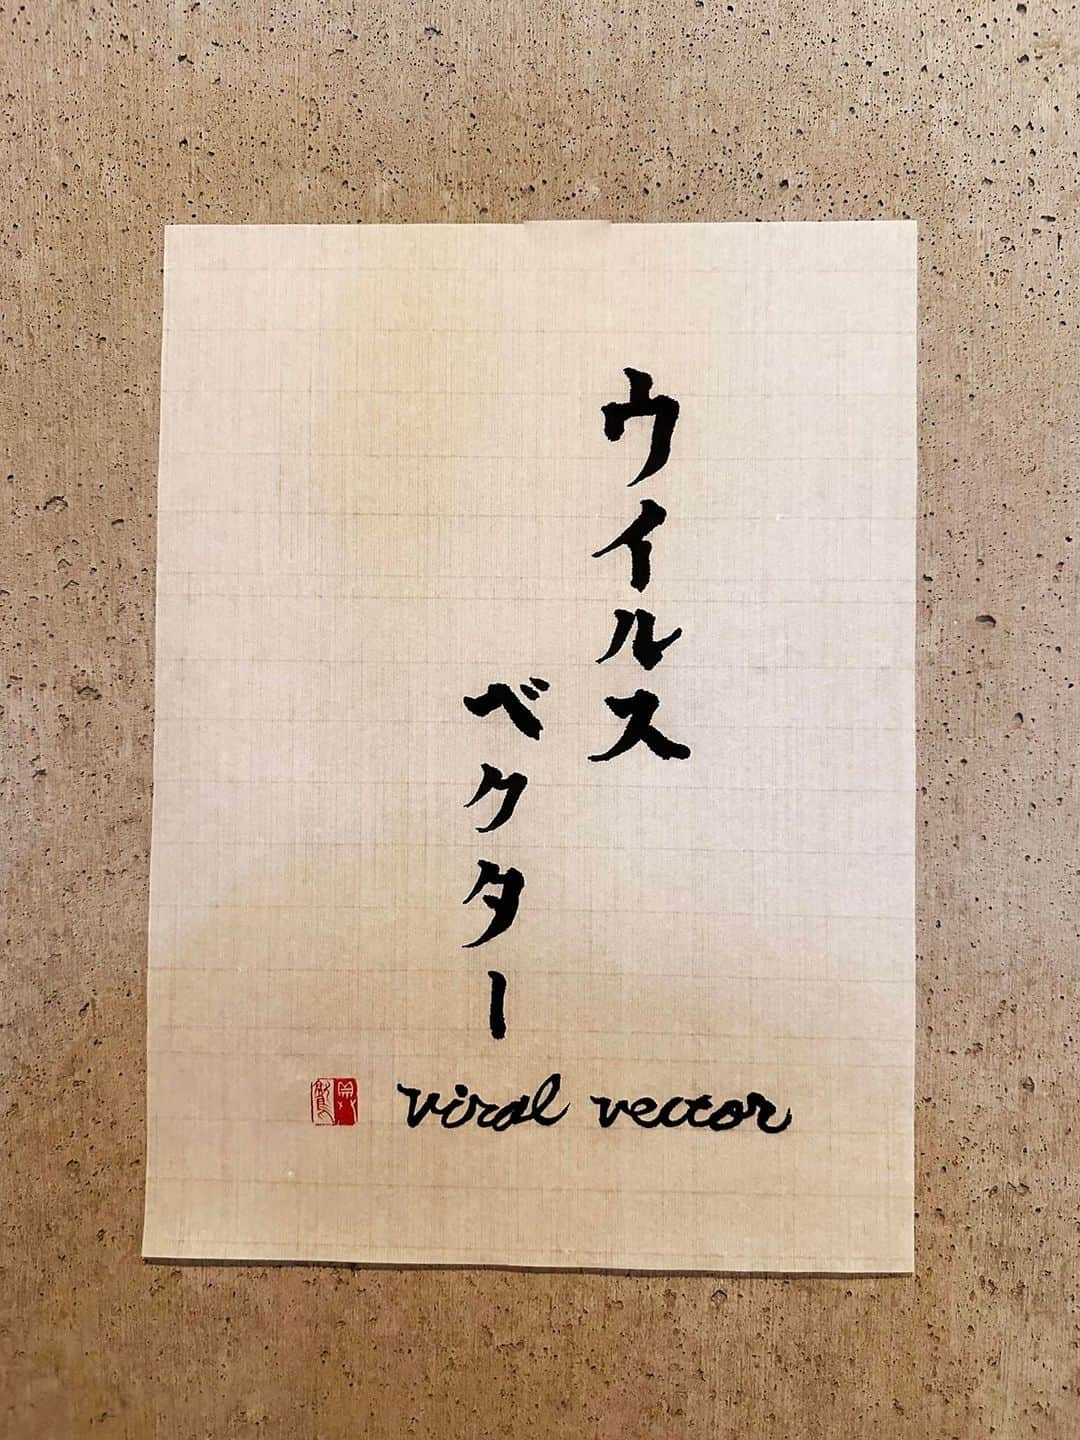 ウイルス
ベクター
viral vector